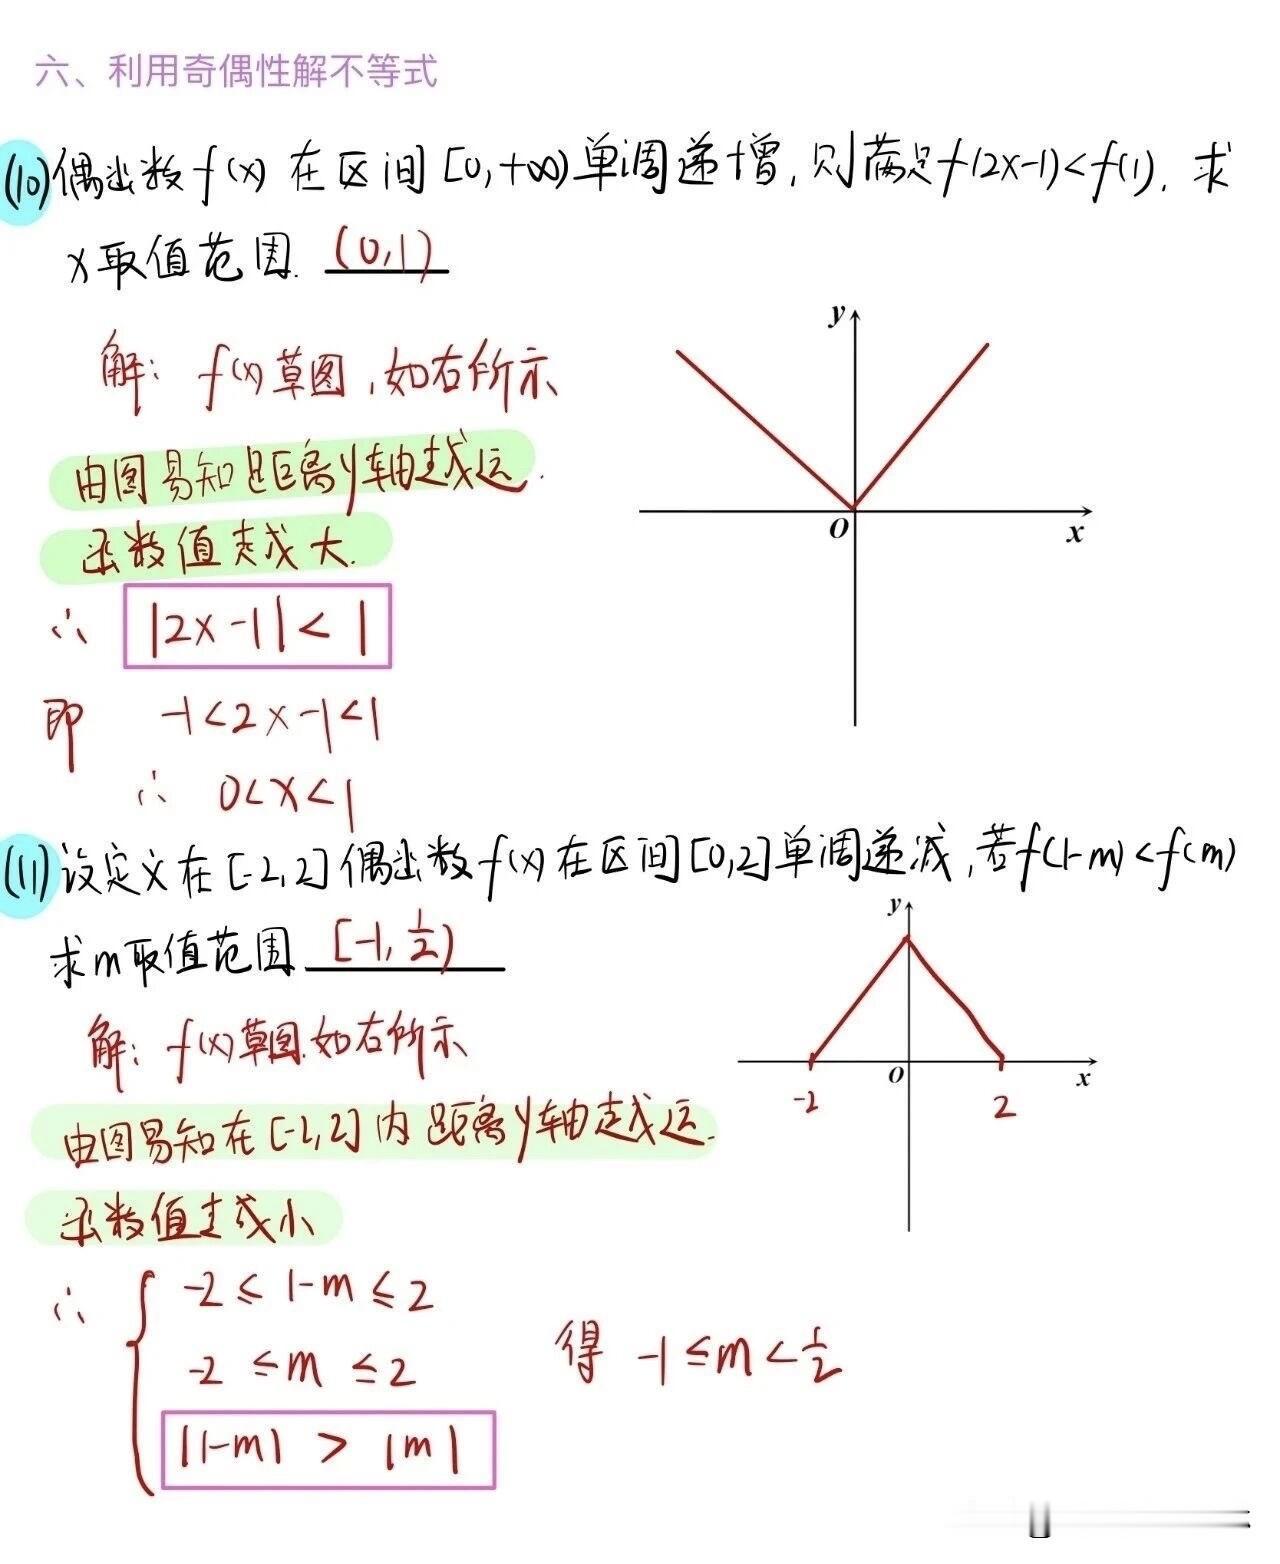 六、利用奇偶性解不等式
(10)偶函数f(x)在区间[0,+∞)单调递增,则满足f(2x-1)<f(1),求
x取值范围. (0,1)
解: f(x)草图,如右所示
由图易知距离y轴越远.
函数值越大.
∴ |2x-1|<1
即 -1<2x-1<1
∴ 0<x<1
y
O
x
(11)设定义在[-2,2]偶函数f(x)在区间[0,2]单调递减,若f(1-m)<f(m)
求m取值范围 [-1,1/2)
解: f(x)草图.如右所示
由图易知在[-2,2]内距离y轴越远.
函数值越小
∴ { -2≤1-m≤2
-2≤m≤2
|1-m|>|m|
得 -1≤m<1/2
y
O
x
-2
2